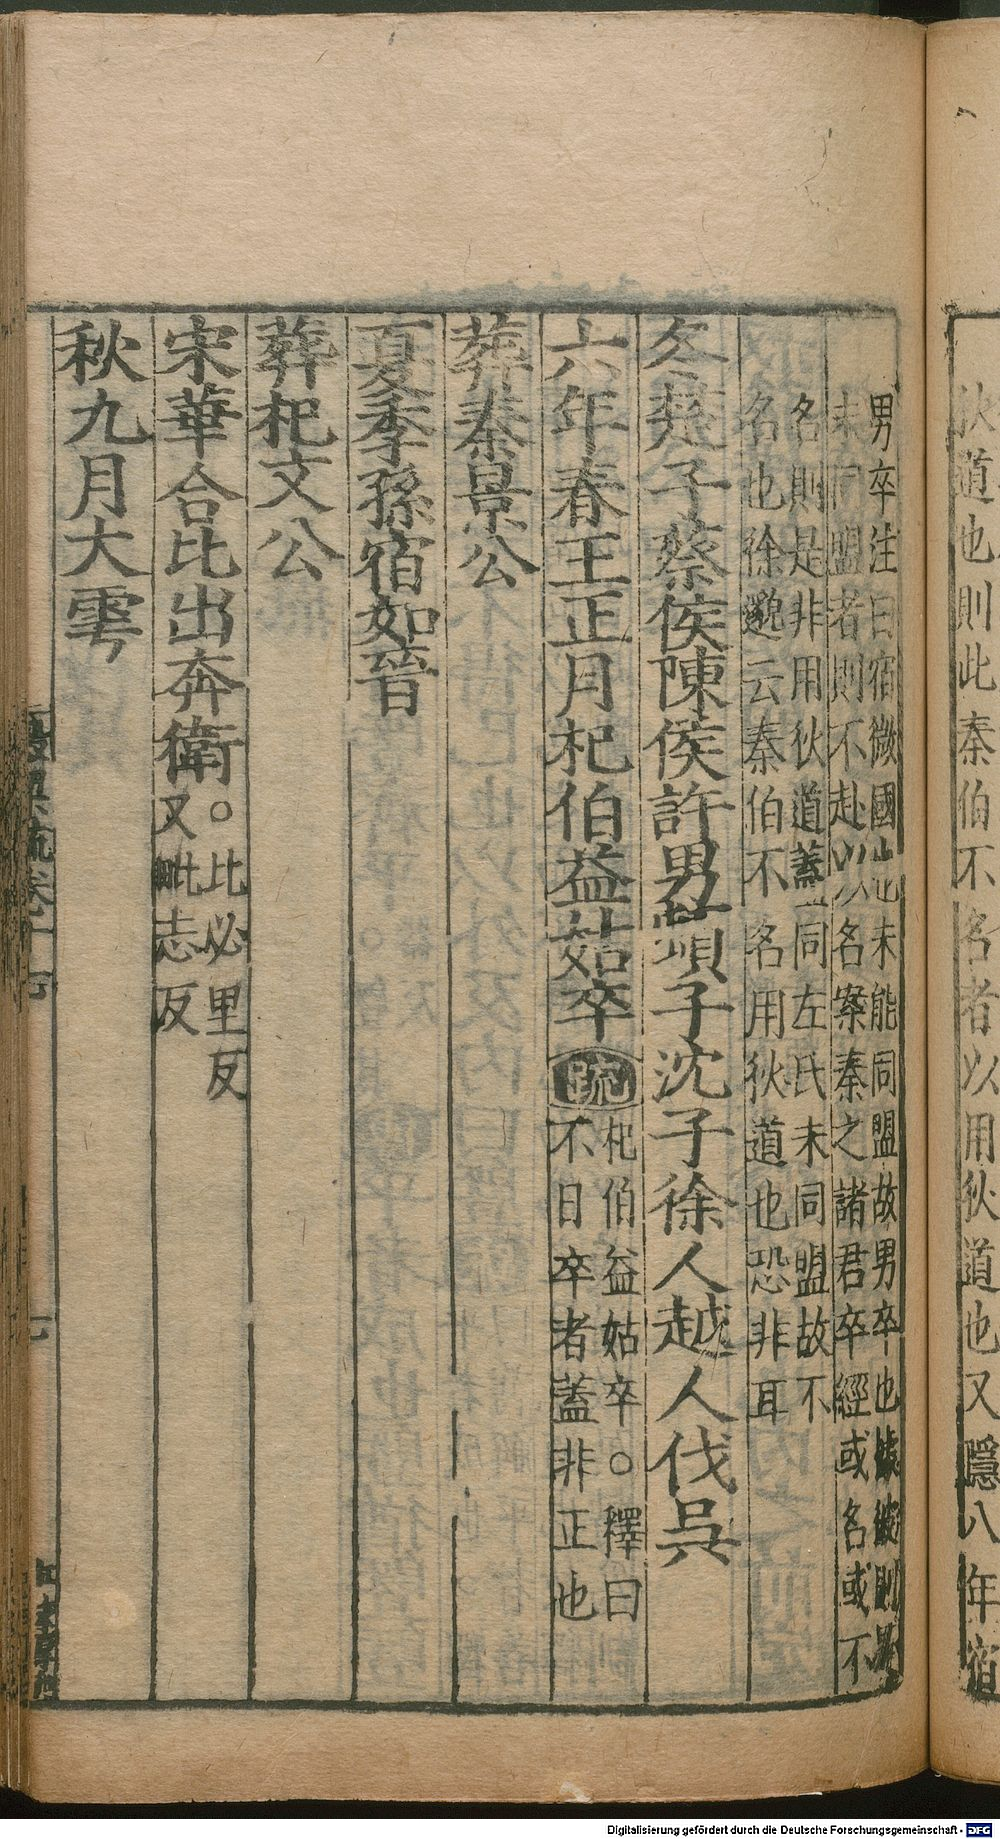 狄道也則此秦伯不名者以用狄道也又隱八年宿
男卒注曰宿微國也未能同盟故男卒也據彼則男
未同盟者則不赴以名案秦之諸君卒經或名或不
名則是非用狄道蓋同左氏未同盟故不
名也徐邈云秦伯不名用狄道也恐非耳
冬楚子蔡侯陳侯許男頓子沈子徐人越人伐吳
六年春王正月杞伯益姑卒
疏
杞伯益姑卒。釋曰
不日卒者蓋非正也
葬秦景公
夏季孫宿如晉
葬杞文公
宋華合比出奔衛。
比必里反
又毗志反
秋九月大雩
七
Digitalisierung gefördert durch die Deutsche Forschungsgemeinschaft - DFG